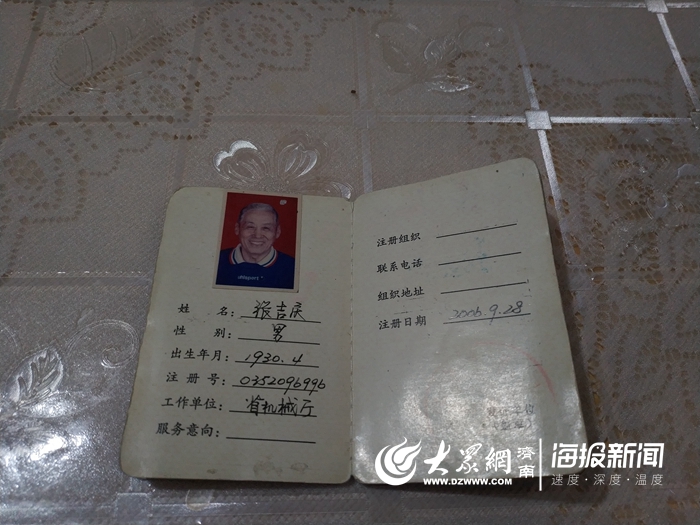 姓 名: 张吉庆
性 别: 男
出生年月: 1930.4
注 册 号: 0352096996
工作单位: 省机械厅
服务意向:
注册组织
联系电话
组织地址
注册日期 2006.9.28
大众網 濟南
WWW.DZWWW.COM
海报新闻
速度·深度·温度